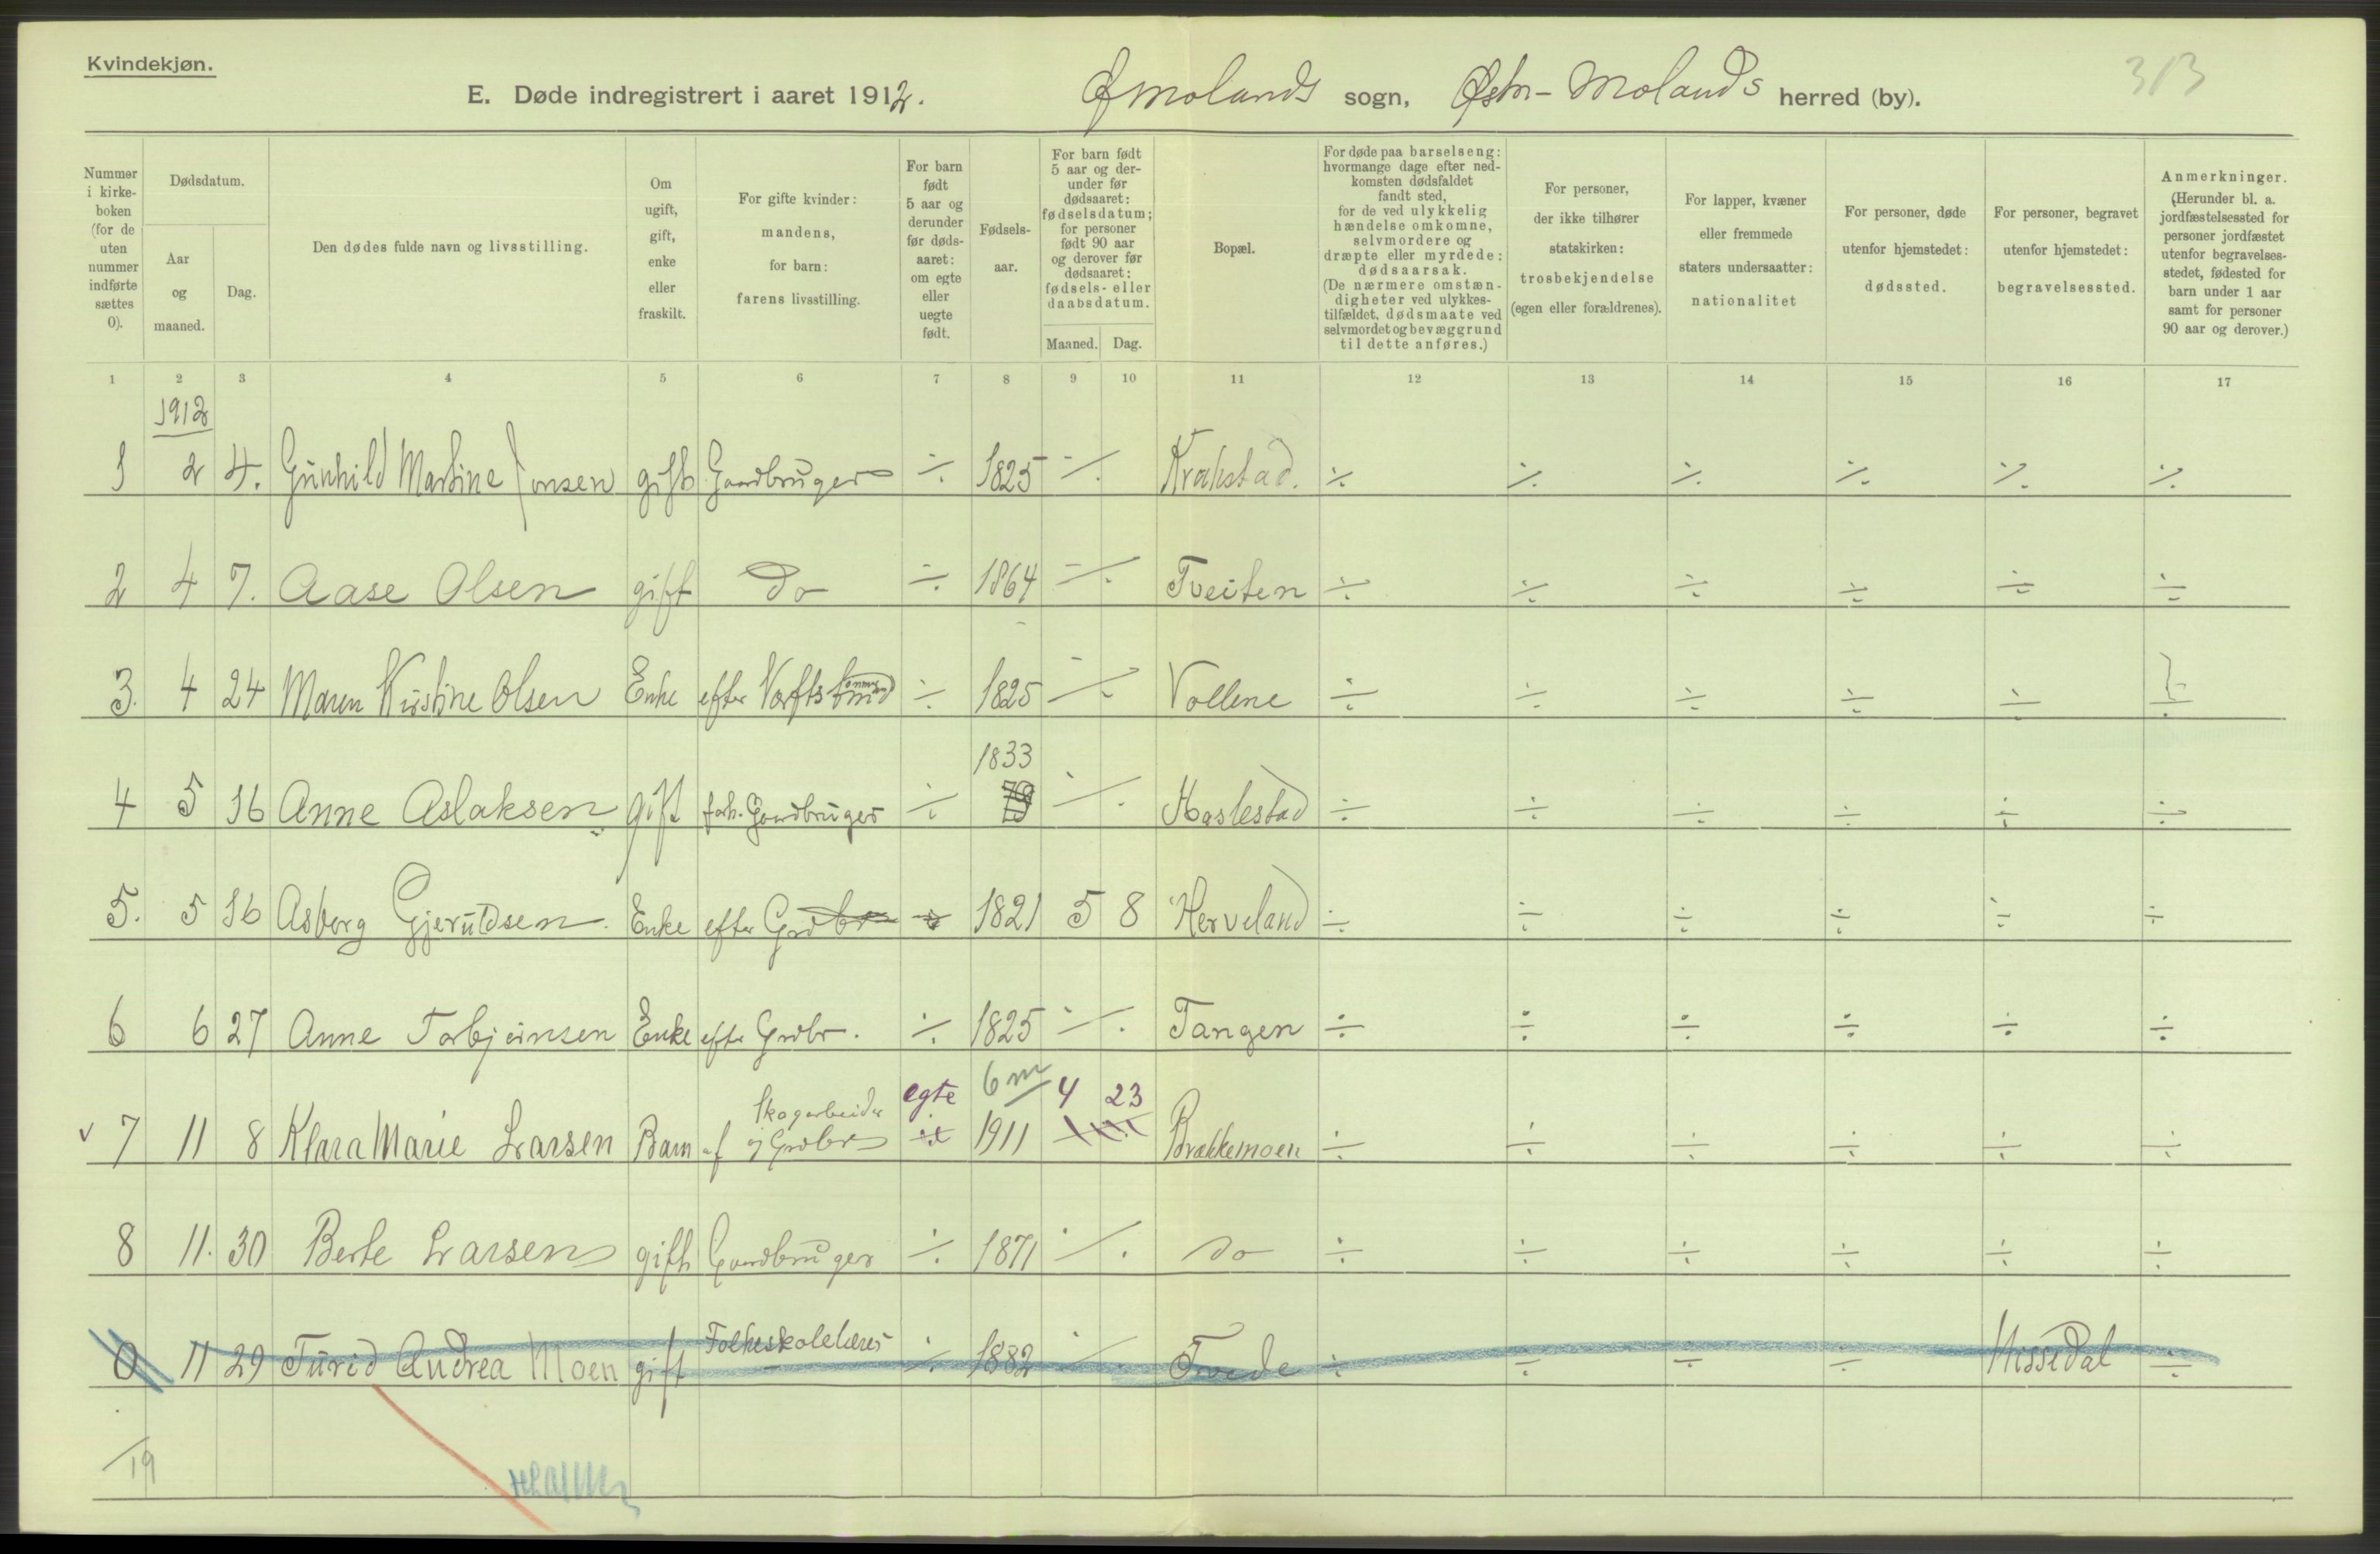 Kvindekjøn.
E. Døde indregistrert i aaret 1912. Ømolands sogn, Østr-Molands herred (by). 313
Nummer i kirkeboken (for de uten nummer indførte sættes 0).
Dødsdatum.
Aar og maaned.
Dag.
Den dødes fulde navn og livsstilling.
Om ugift, gift, enke eller fraskilt.
For gifte kvinder: mandens, for barn: farens livsstilling.
For barn født 5 aar og derunder før dødsaaret: om egte eller uegte født.
Fødselsaar.
For barn født 5 aar og derunder før dødsaaret: fødselsdatum; for personer født 90 aar og derover før dødsaaret: fødsels- eller daabsdatum.
Maaned. Dag.
Bopæl.
For døde paa barselseng: hvormange dage efter nedkomsten dødsfaldet fandt sted, for de ved ulykkelig hændelse omkomne, selvmordere og dræpte eller myrdede: dødsaarsak. (De nærmere omstændigheter ved ulykkestilfældet, dødsmaate ved selvmordet og bevæggrund til dette anføres.)
For personer, der ikke tilhører statskirken: trosbekjendelse (egen eller forældrenes).
For lapper, kvæner eller fremmede staters undersaatter: nationalitet
For personer, døde utenfor hjemstedet: dødssted.
For personer, begravet utenfor hjemstedet: begravelsessted.
Anmerkninger. (Herunder bl. a. jordfæstelsessted for personer jordfæstet utenfor begravelsesstedet, fødested for barn under 1 aar samt for personer 90 aar og derover.)
1 2 3 4 5 6 7 8 9 10 11 12 13 14 15 16 17
1912
1 2 4. Gunhild Martine Jonsen gift Gaardbruger ÷ 1825 ÷ Krahstad. ÷ ÷ ÷ ÷ ÷ ÷
2 4 7. Aase Olsen gift do ÷ 1864 ÷ Tveiten ÷ ÷ ÷ ÷ ÷ ÷
3. 4 24 Maren Kirstine Olsen Enke efter ÷ 1825 ÷ Vollene ÷ ÷ ÷ ÷ ÷ ÷
1833
4 5 16 Anne Aslaksen gift forh. Gaardbruger ÷ 79 ÷ Haslestad ÷ ÷ ÷ ÷ ÷ ÷
5. 5 16 Asborg Gjeruldsen. Enke efter Grdbr ÷ 1821 5 8 Herveland ÷ ÷ ÷ ÷ ÷ ÷
6 6 27 Anne Torbjørnsen Enke efter Grdbr. ÷ 1825 ÷ Tangen ÷ ÷ ÷ ÷ ÷ ÷
Skogarbeider egte 6 m 4 23
v 7 11 8 Klara Marie Larsen Barn af og Grdbr 1911 Brækkemoen ÷ ÷ ÷ ÷ ÷ ÷
8 11. 30 Berte Larsen gift Gaardbruger ÷ 1871 ÷ do ÷ ÷ ÷ ÷ ÷ ÷
0 11 29 Turid Andrea Moen gift Folkeskolelærer ÷ 1882 ÷ Tvede ÷ ÷ ÷ ÷ Hissedal ÷
19